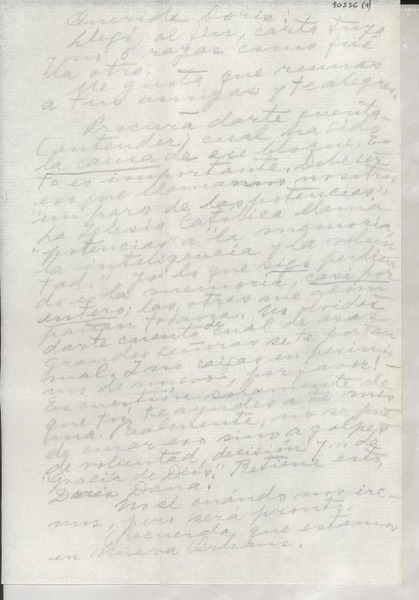 10226 (1)
Querida Doris:
Llegó, al fin, carta tuya
y no 5 rayas como fué
la otra.
Me gusta que reunas
a tus amigas y te alegres.
Procura darte cuenta
(entender) cual ha sido
la causa de ese bloqueo. Es
to es importante. Debe ser
eso que llamamos nosotros
"un paro de las potencias"
La Iglesia Católica llama
"potencias" a la memoria,
la inteligencia y la volun
tad." Yo lo que sigo perdien
do es la memoria, casi por
entero; las otras me
todavía. No olvides
darte cuenta de cual de esas
grandes señoras se te porta
mal. I no caigas en pesimis
mo de nuevo, por favor!
Es cuestión solamente de
que tú te ayudes a tí mis
ma. Realmente, no se pue
de curar eso sino a golpes
de voluntad, decisión y "de
Gracia de Dios". Retiene esto
Doris Dana.
No sé cuándo nos ire
mos, pero será pronto.
Recuerda que estamos
en Nueva Orleans.